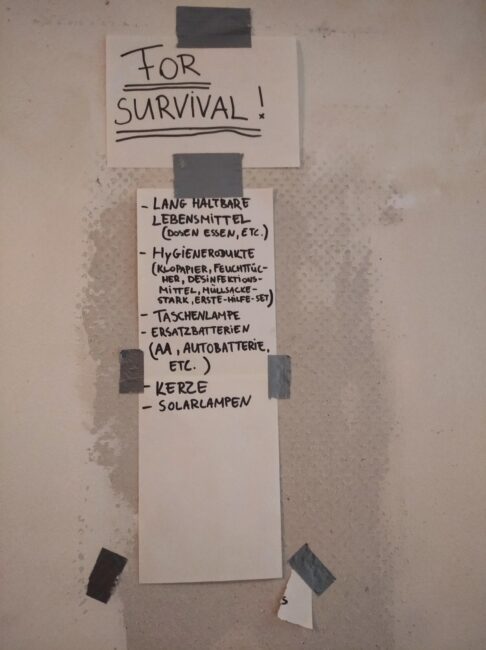 FOR
SURVIVAL!
- LANG HALTBARE
LEBENSMITTEL
(DOSEN ESSEN, ETC.)
- HYGIENERODUKTE
(KLOPAPIER, FEUCHTTÜC-
HER, DESINFEKTIONS-
MITTEL, MÜLLSÄCKE-
STARK, ERSTE-HILFE-SET)
- TASCHENLAMPE
- ERSATZBATTERIEN
(AA, AUTOBATTERIE,
ETC.)
- KERZE
- SOLARLAMPEN
S